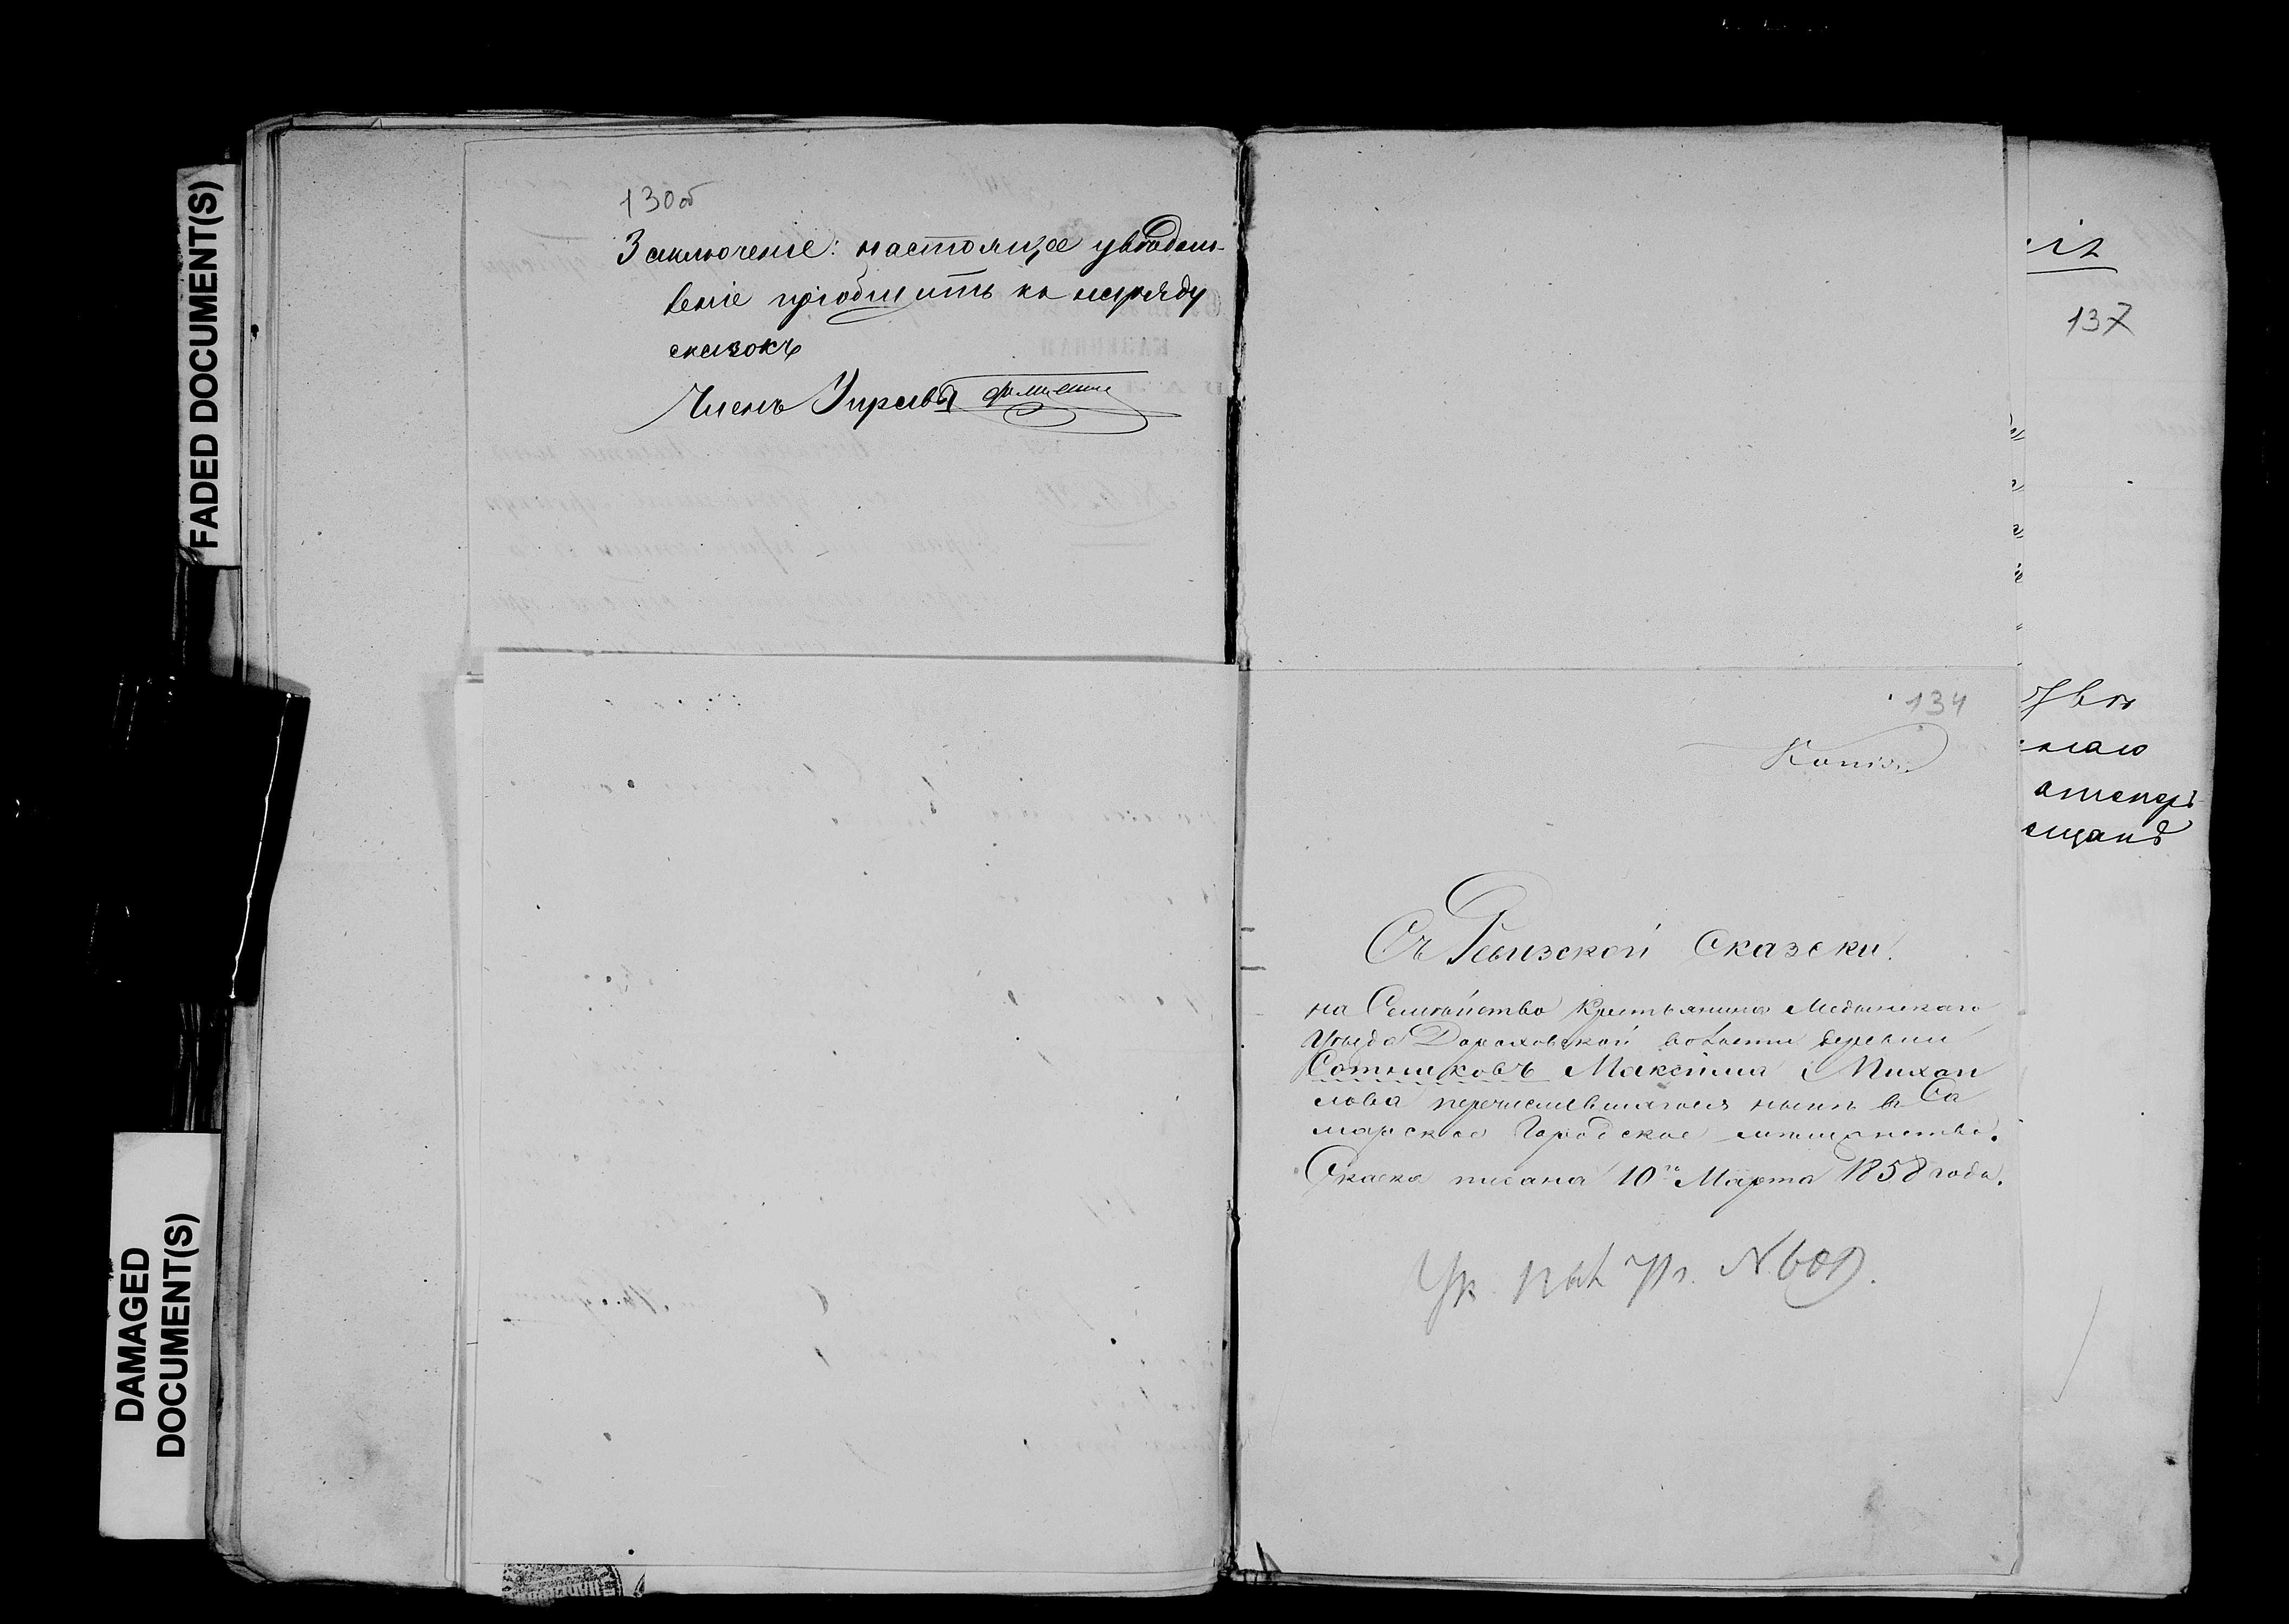 FADED DOCUMENT(S)
DAMAGED
DOCUMENT(S)
130об
Заключенiе: настоящее уведомле-
ніе пріобщить къ наряду
сказокъ
Членъ Управы
134
Копія
Съ Ревизской Сказски.
на Семѣйство Крестьянина Медынскаго
Уѣзда Дороховской волости деревни
Сотниковъ Максима Михаи
лова перечислившагося нынѣ въ Са
марское Городское мѣщанство.
Сказка писана 10го Марта 1858 года.
N 609.
137